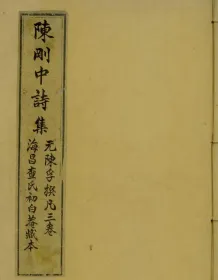 陳剛中詩集
元陳孚撰凡三卷
海昌查氏初白菴藏本